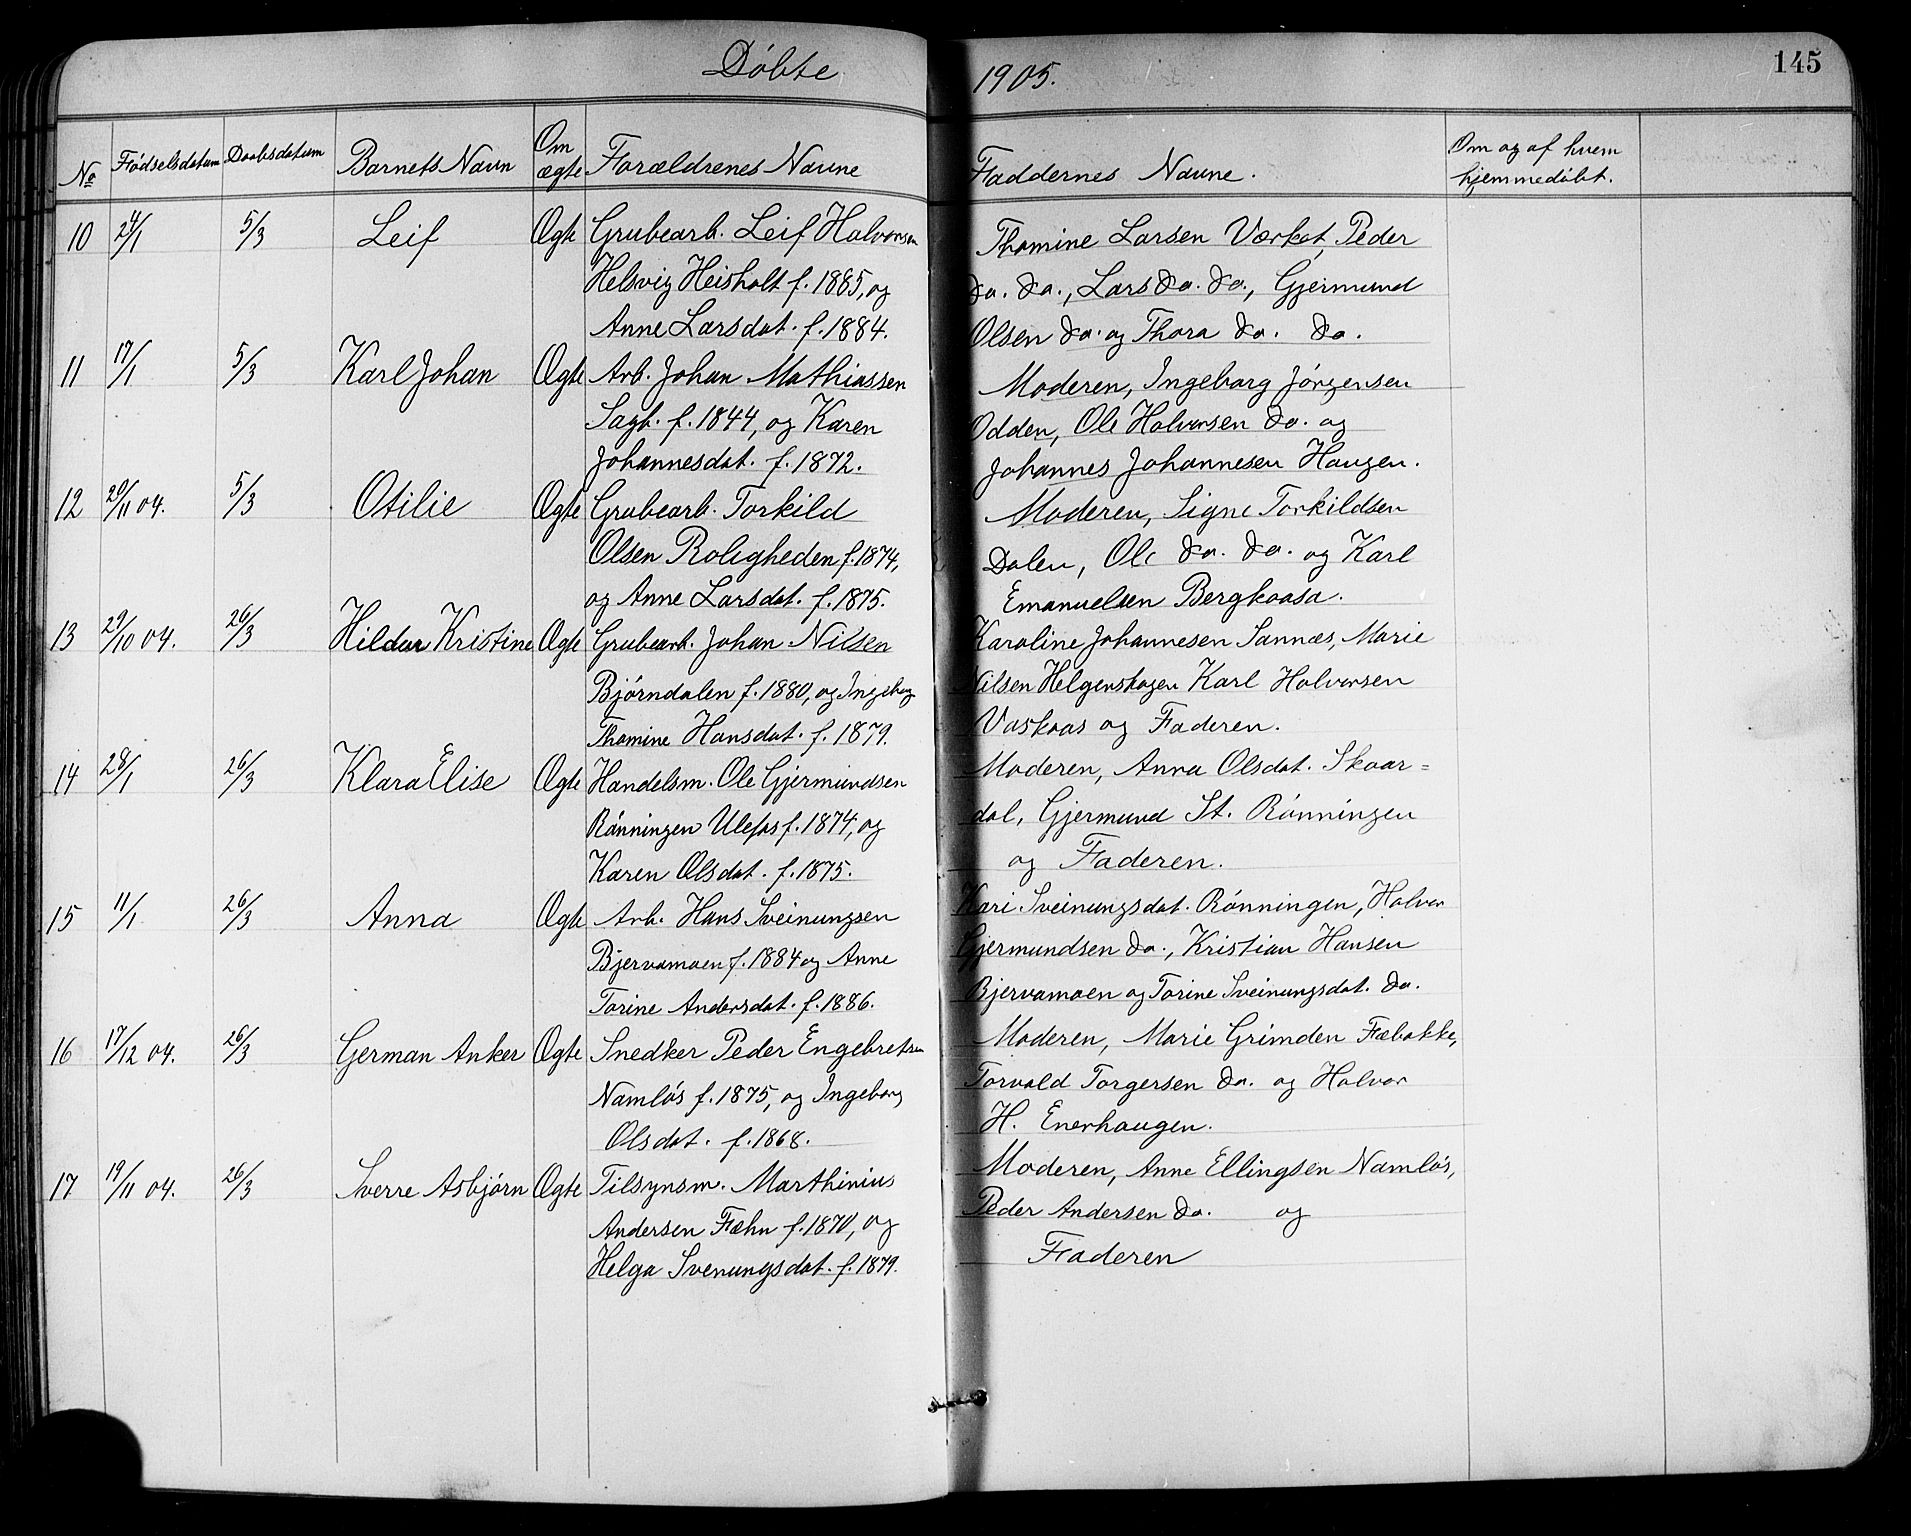 Döbte 1905. 145
No Fódselsdatum Daabsdatum Barnets Navn Om ægte Forældrenes Navne Faddernes Navne. Om og af hvem hjemmedöbt.
10 24/1 5/3 Leif Ægte Grubearb. Leif Halvorsen Thomine Larsen Værket, Peder
Helsvig Heisholt f. 1885, og do. do., Lars do. do., Gjermund
Anne Larsdat. f. 1884. Olsen do. og Thora do. do.
11 17/1 5/3 Karl Johan Ægte Arb. Johan Mathiassen Moderen, Ingeborg Jörgensen
Sagb. f. 1844, og Karen Odden, Ole Halvorsen do. og
Johannesdat. f. 1872. Johannes Johannesen Haugen.
12 20/11 04. 5/3 Otilie Ægte Grubearb. Torkild Moderen, Signe Torkildsen
Olsen Roligheden f. 1874, Dalen, Ole do. do. og Karl
og Anne Larsdat. f. 1875. Emanuelsen Bergkaasa.
13 29/10 04. 26/3 Hildur Kristine Ægte Grubearb. Johan Nilsen Karoline Johannesen Sannæs, Marie
Björndalen f. 1880, og Ingeborg Nilsen Helgenshagen Karl Halvorsen
Thomine Hansdat. f. 1879. Vaskaas og Faderen.
14 28/1 26/3 Klara Elise Ægte Handelsm. Ole Gjermundsen Moderen, Anna Olsdat. Skaar=
Rönningen Ulefos f. 1874, og dal, Gjermund St. Rönningen
Karen Olsdat. f. 1875. og Faderen.
15 11/1 26/3 Anna Ægte Arb. Hans Sveinungsen Kari Sveinungsdat. Rönningen, Halvor
Bjervamoen f. 1884 og Anne Gjermundsen do., Kristian Hansen
Torine Andersdat. f. 1886. Bjervamoen og Torine Sveinungsdat. do.
16 17/12 04. 26/3 German Anker Ægte Snedker Peder Engebretsen Moderen, Marie Grimden Fæbakke,
Namlös f. 1875, og Ingeborg Torvald Torgersen do. og Halvor
Olsdat. f. 1868. H. Enerhaugen.
17 19/11 04. 26/3 Sverre Asbjörn Ægte Tilsynsm. Marthinius Moderen, Anne Ellingsen Namlös,
Andersen Fæhn f. 1870, og Peder Andersen do. og
Helga Svenungsdat. f. 1879. Faderen